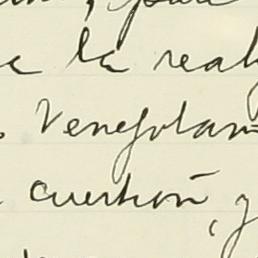 la real
Venezolan=
cuestión, y